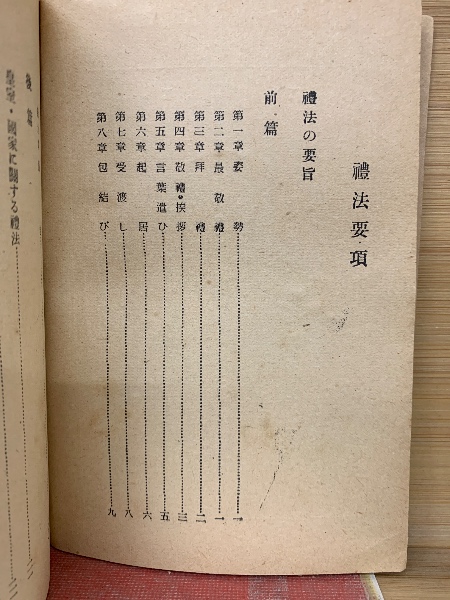 禮法要項
禮法の要旨
前篇
第一章 姿勢……一
第二章 最敬禮……一
第三章 拜禮……二
第四章 敬禮・挨拶……三
第五章 言葉遣ひ……五
第六章 起居……六
第七章 受渡し……八
第八章 包結び……九
後篇
皇室・國家に關する禮法……